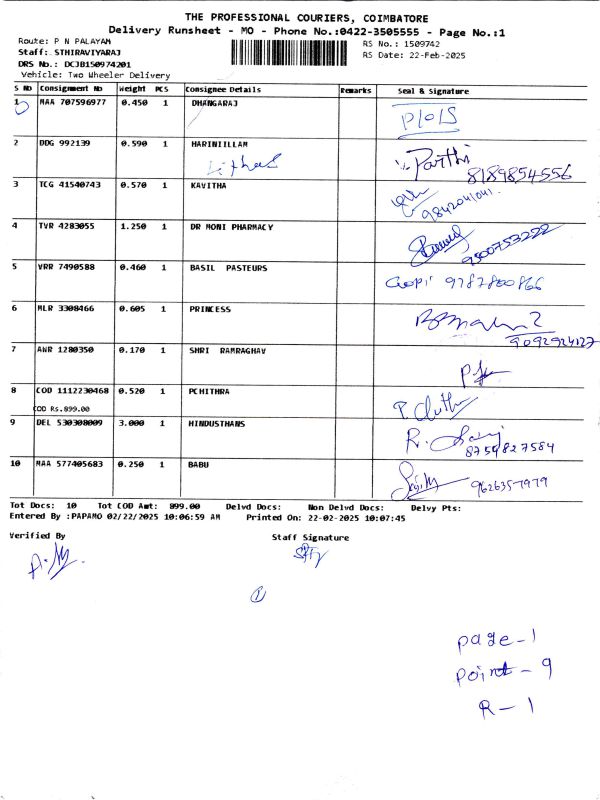 THE PROFESSIONAL COURIERS, COIMBATORE
Delivery Runsheet - MO - Phone No.:0422-3505555 - Page No.:1
Route: P N PALAYAM
RS No.: 1509742
Staff: STHIRAVIYARAJ
RS Date: 22-Feb-2025
DRS No.: DCJB150974201
Vehicle: Two Wheeler Delivery
S No Consignment No Weight PCS Consignee Details Remarks Seal & Signature
1 MAA 707596977 0.450 1 DHANGARAJ
2 DDG 992139 0.590 1 HARINIILLAM
Parthi
8189854556
3 TCG 41540743 0.570 1 KAVITHA
9842041041.
4 TVR 4283055 1.250 1 DR MONI PHARMACY
9500753222
5 VRR 7490588 0.460 1 BASIL PASTEURS Gopi 9787800866
6 MLR 3308466 0.605 1 PRINCESS
9092924127
7 ANR 1280350 0.170 1 SHRI RAMRAGHAV
8 COD 1112230468 0.520 1 PCHITHRA
COD Rs.899.00
9 DEL 530308009 3.000 1 HINDUSTHANS
8754827584
10 MAA 577405683 0.250 1 BABU
9626357979
Tot Docs: 10 Tot COD Amt: 899.00 Delvd Docs: Non Delvd Docs: Delvy Pts:
Entered By :PAPAMO 02/22/2025 10:06:59 AM Printed On: 22-02-2025 10:07:45
Verified By Staff Signature
1
page-1
point - 9
R - 1